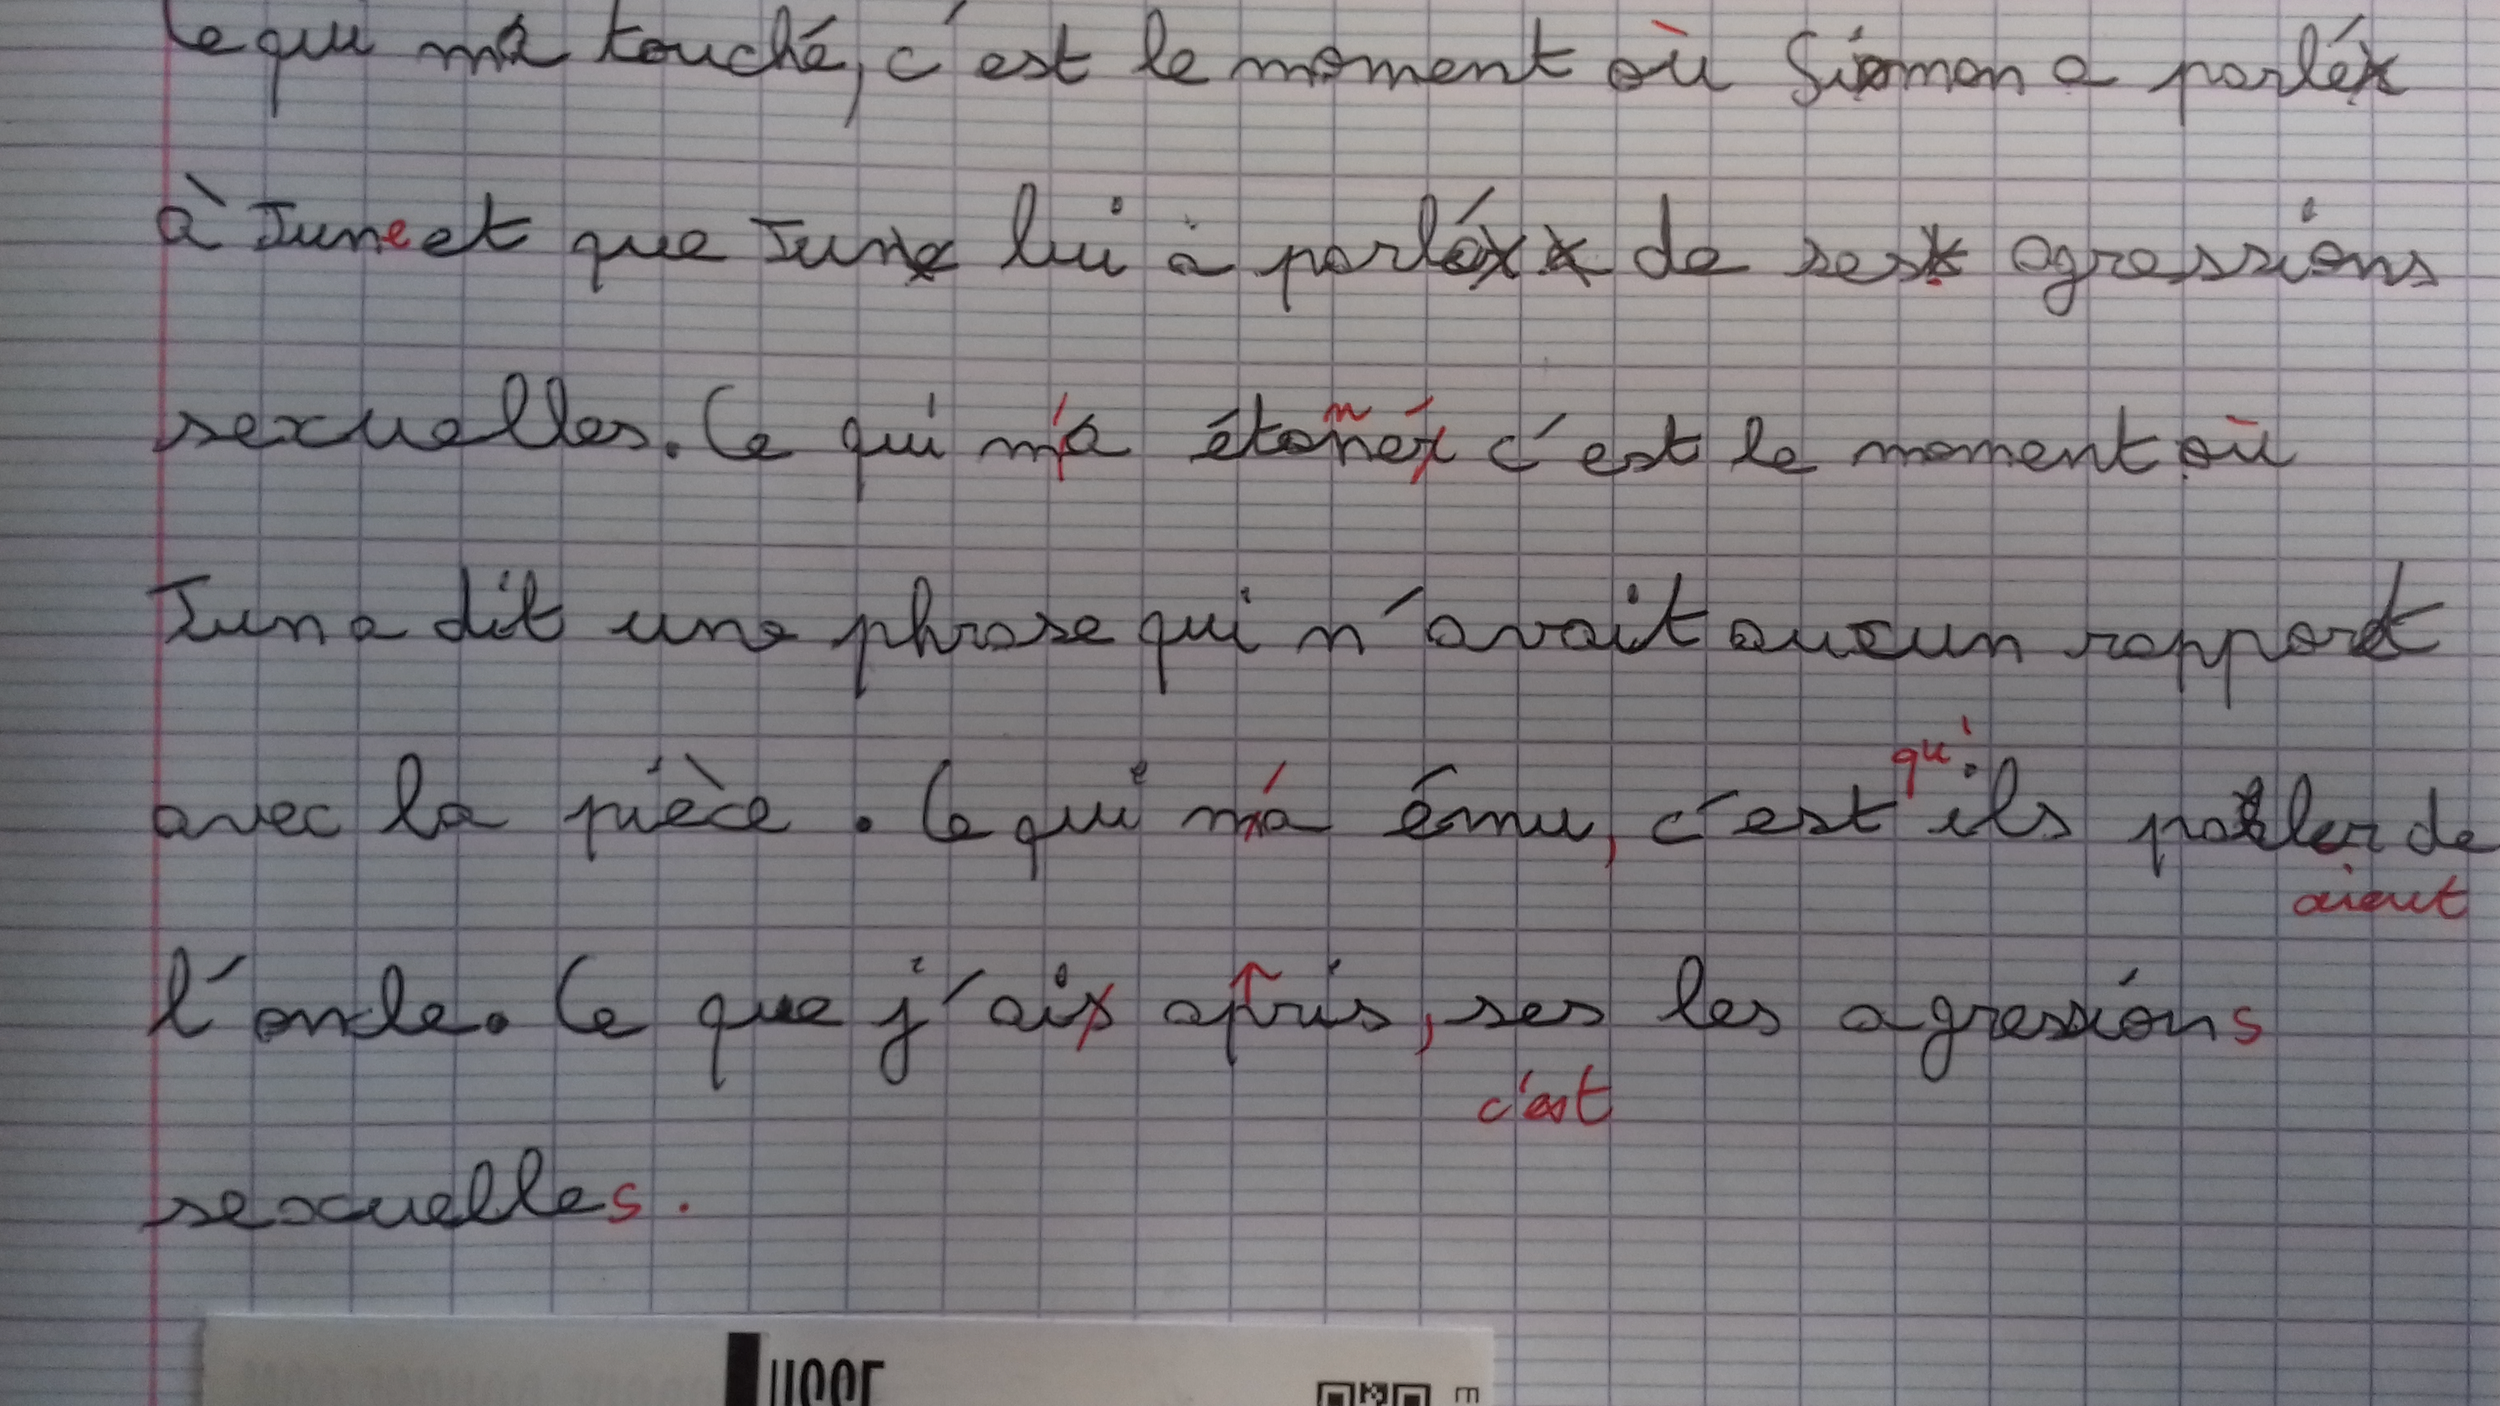 Ce qui m'a touché, c'est le moment où Siomon a parlé
à June et que June lui à parlé de ses agressions
sexuelles. Ce qui m'a étonné c'est le moment où
Jun a dit une phrase qui n'avait aucun rapport
avec la pièce. Ce qui m'a ému, c'est qu'ils parler de
aient
l'oncle. Ce que j'ai appris, ses les agressions
c'est
sexuelles.